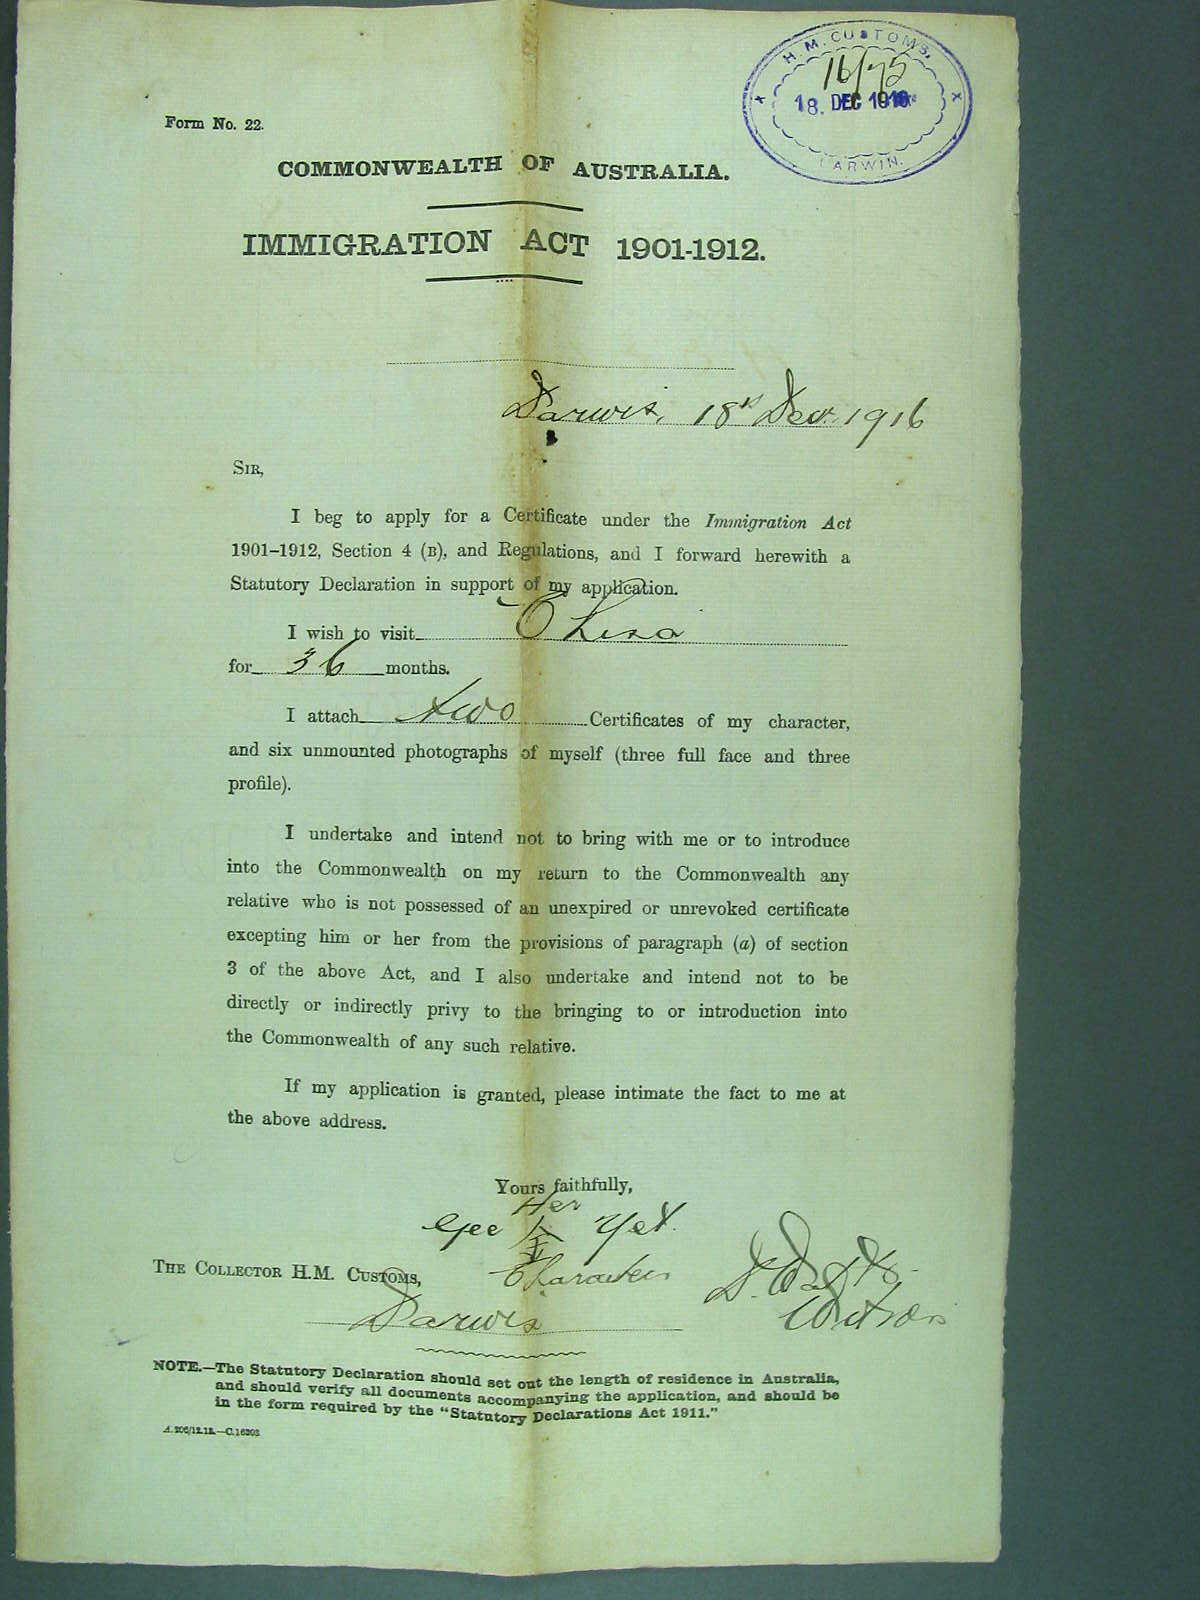 H. M. CUSTOMS,
16/75
18. DEC 1916
DARWIN.
Form No. 22.
COMMONWEALTH OF AUSTRALIA.
IMMIGRATION ACT 1901-1912.
Darwin, 18th Decr. 1916
SIR,
I beg to apply for a Certificate under the Immigration Act
1901–1912, Section 4 (B), and Regulations, and I forward herewith a
Statutory Declaration in support of my application.
I wish to visit China
for 36 months.
I attach two Certificates of my character,
and six unmounted photographs of myself (three full face and three
profile).
I undertake and intend not to bring with me or to introduce
into the Commonwealth on my return to the Commonwealth any
relative who is not possessed of an unexpired or unrevoked certificate
excepting him or her from the provisions of paragraph (a) of section
3 of the above Act, and I also undertake and intend not to be
directly or indirectly privy to the bringing to or introduction into
the Commonwealth of any such relative.
If my application is granted, please intimate the fact to me at
the above address.
Yours faithfully,
Her
Gee Yet.
Characters
THE COLLECTOR H.M. CUSTOMS,
Darwin
NOTE.—The Statutory Declaration should set out the length of residence in Australia,
and should verify all documents accompanying the application, and should be
in the form required by the "Statutory Declarations Act 1911."